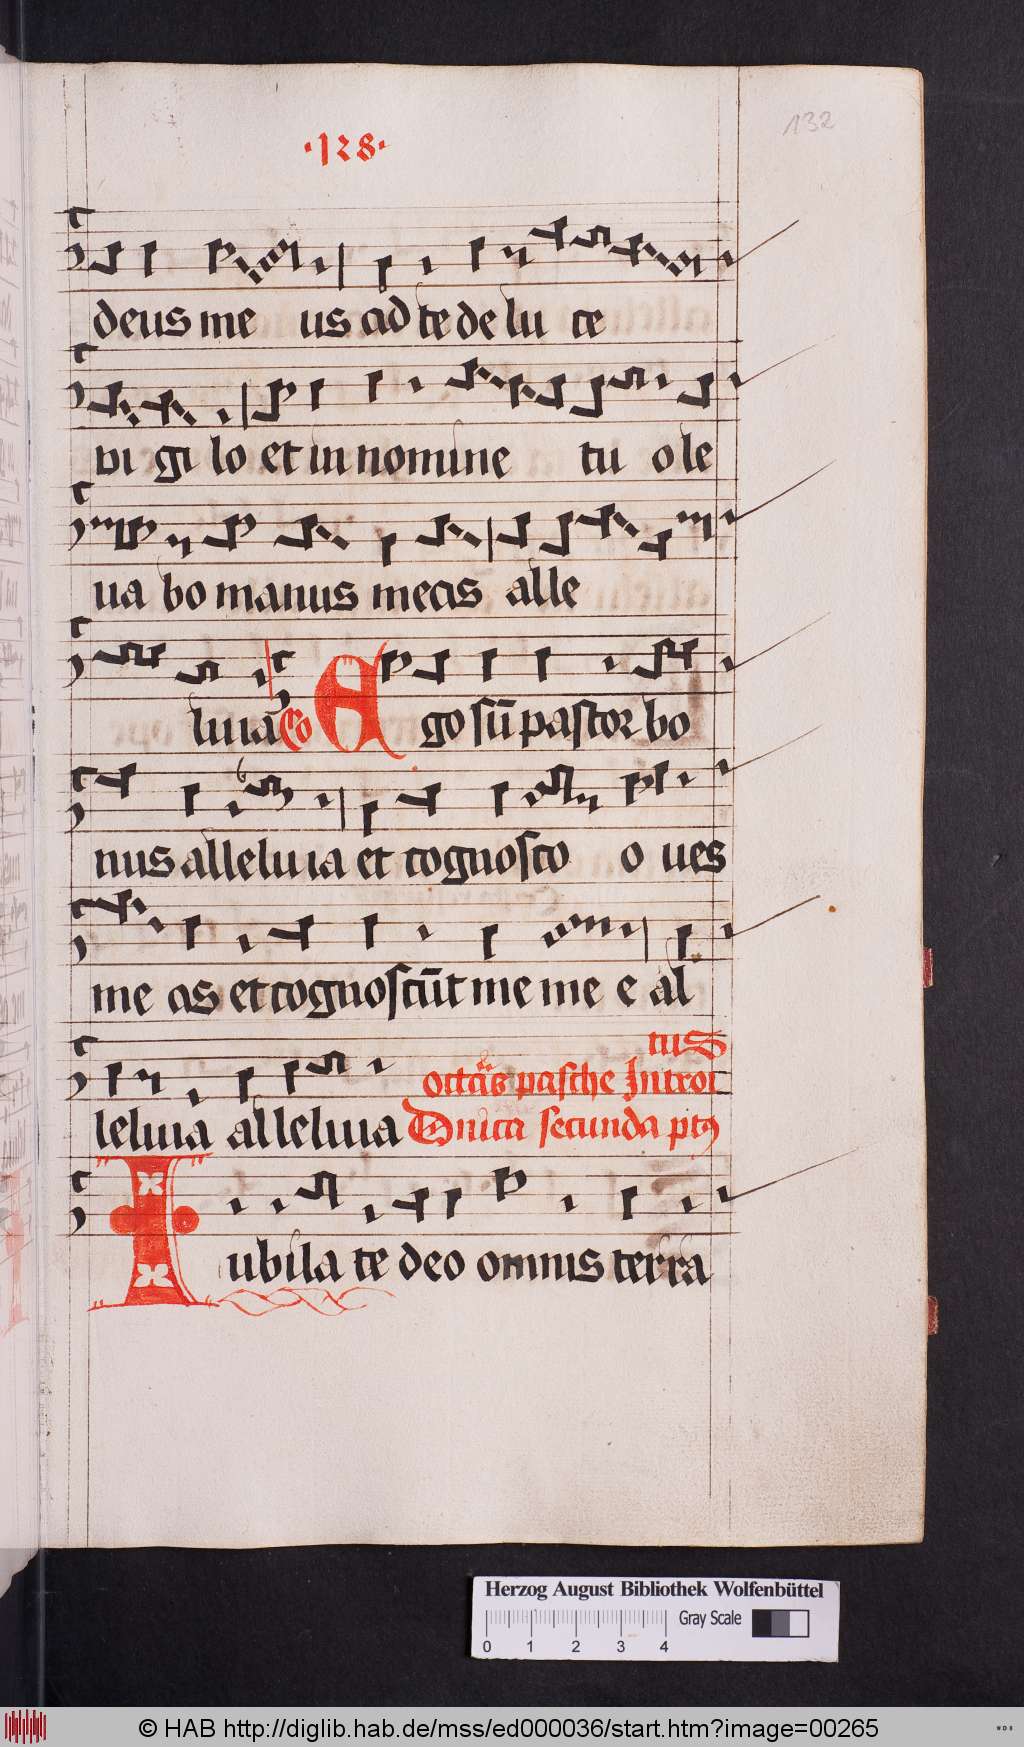 ·128·
132
deus me us ad te de lu ce
vi gi lo et in nomine tu o le
ua bo manus meas alle
luia Co Ego sū pastor bo
nus alleluia et cognosco o ues
me as et cognoscūt me me e al
tus
octāˢ pasche Introi
leluia alleluia Dnica secunda pꝰ
Iubila te deo omnis terra
Herzog August Bibliothek Wolfenbüttel
Gray Scale
0 1 2 3 4
© HAB http://diglib.hab.de/mss/ed000036/start.htm?image=00265